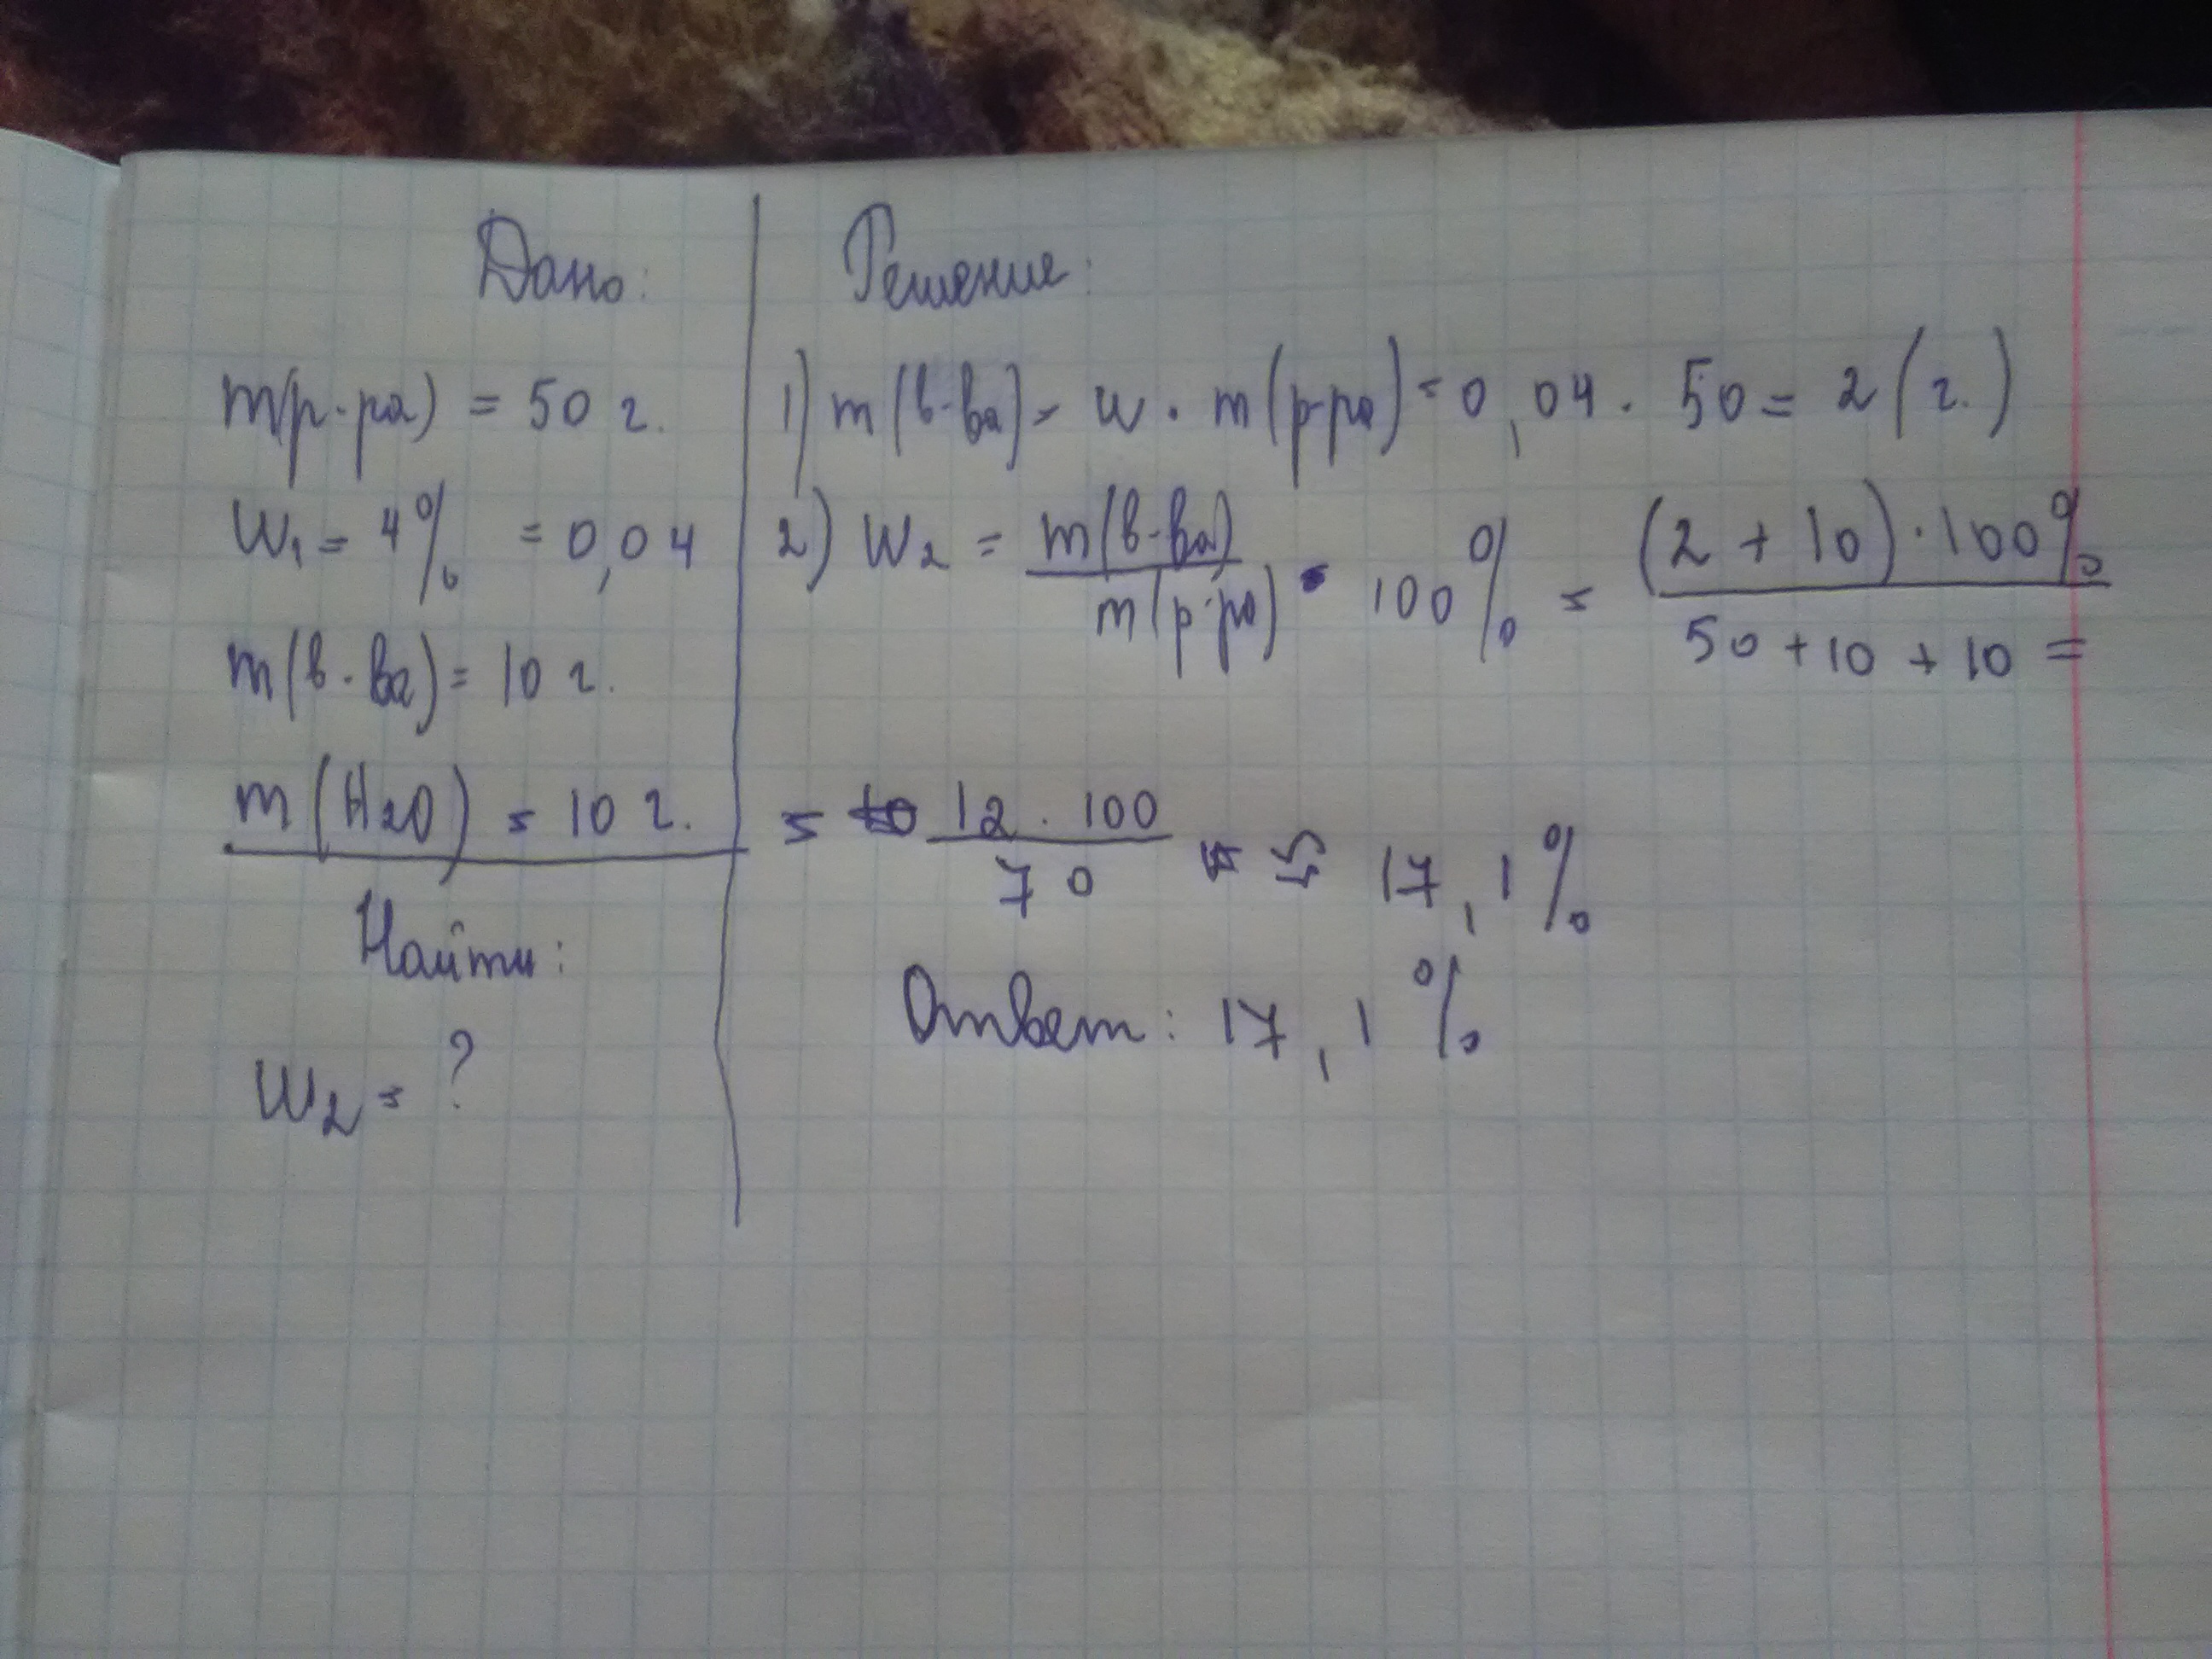 Дано:
m(р-ра) = 50 г.
W1 = 4% = 0,04
m(в-ва) = 10 г.
m(H2O) = 10 г.
Найти:
W2 = ?
Решение:
1) m(в-ва) = w · m(р-ра) = 0,04 · 50 = 2 (г.)
2) W2 = m(в-ва) / m(р-ра) · 100% = (2 + 10) · 100% / 50 + 10 + 10 =
= 12 · 100 / 70 ≈ 17,1%
Ответ: 17,1%